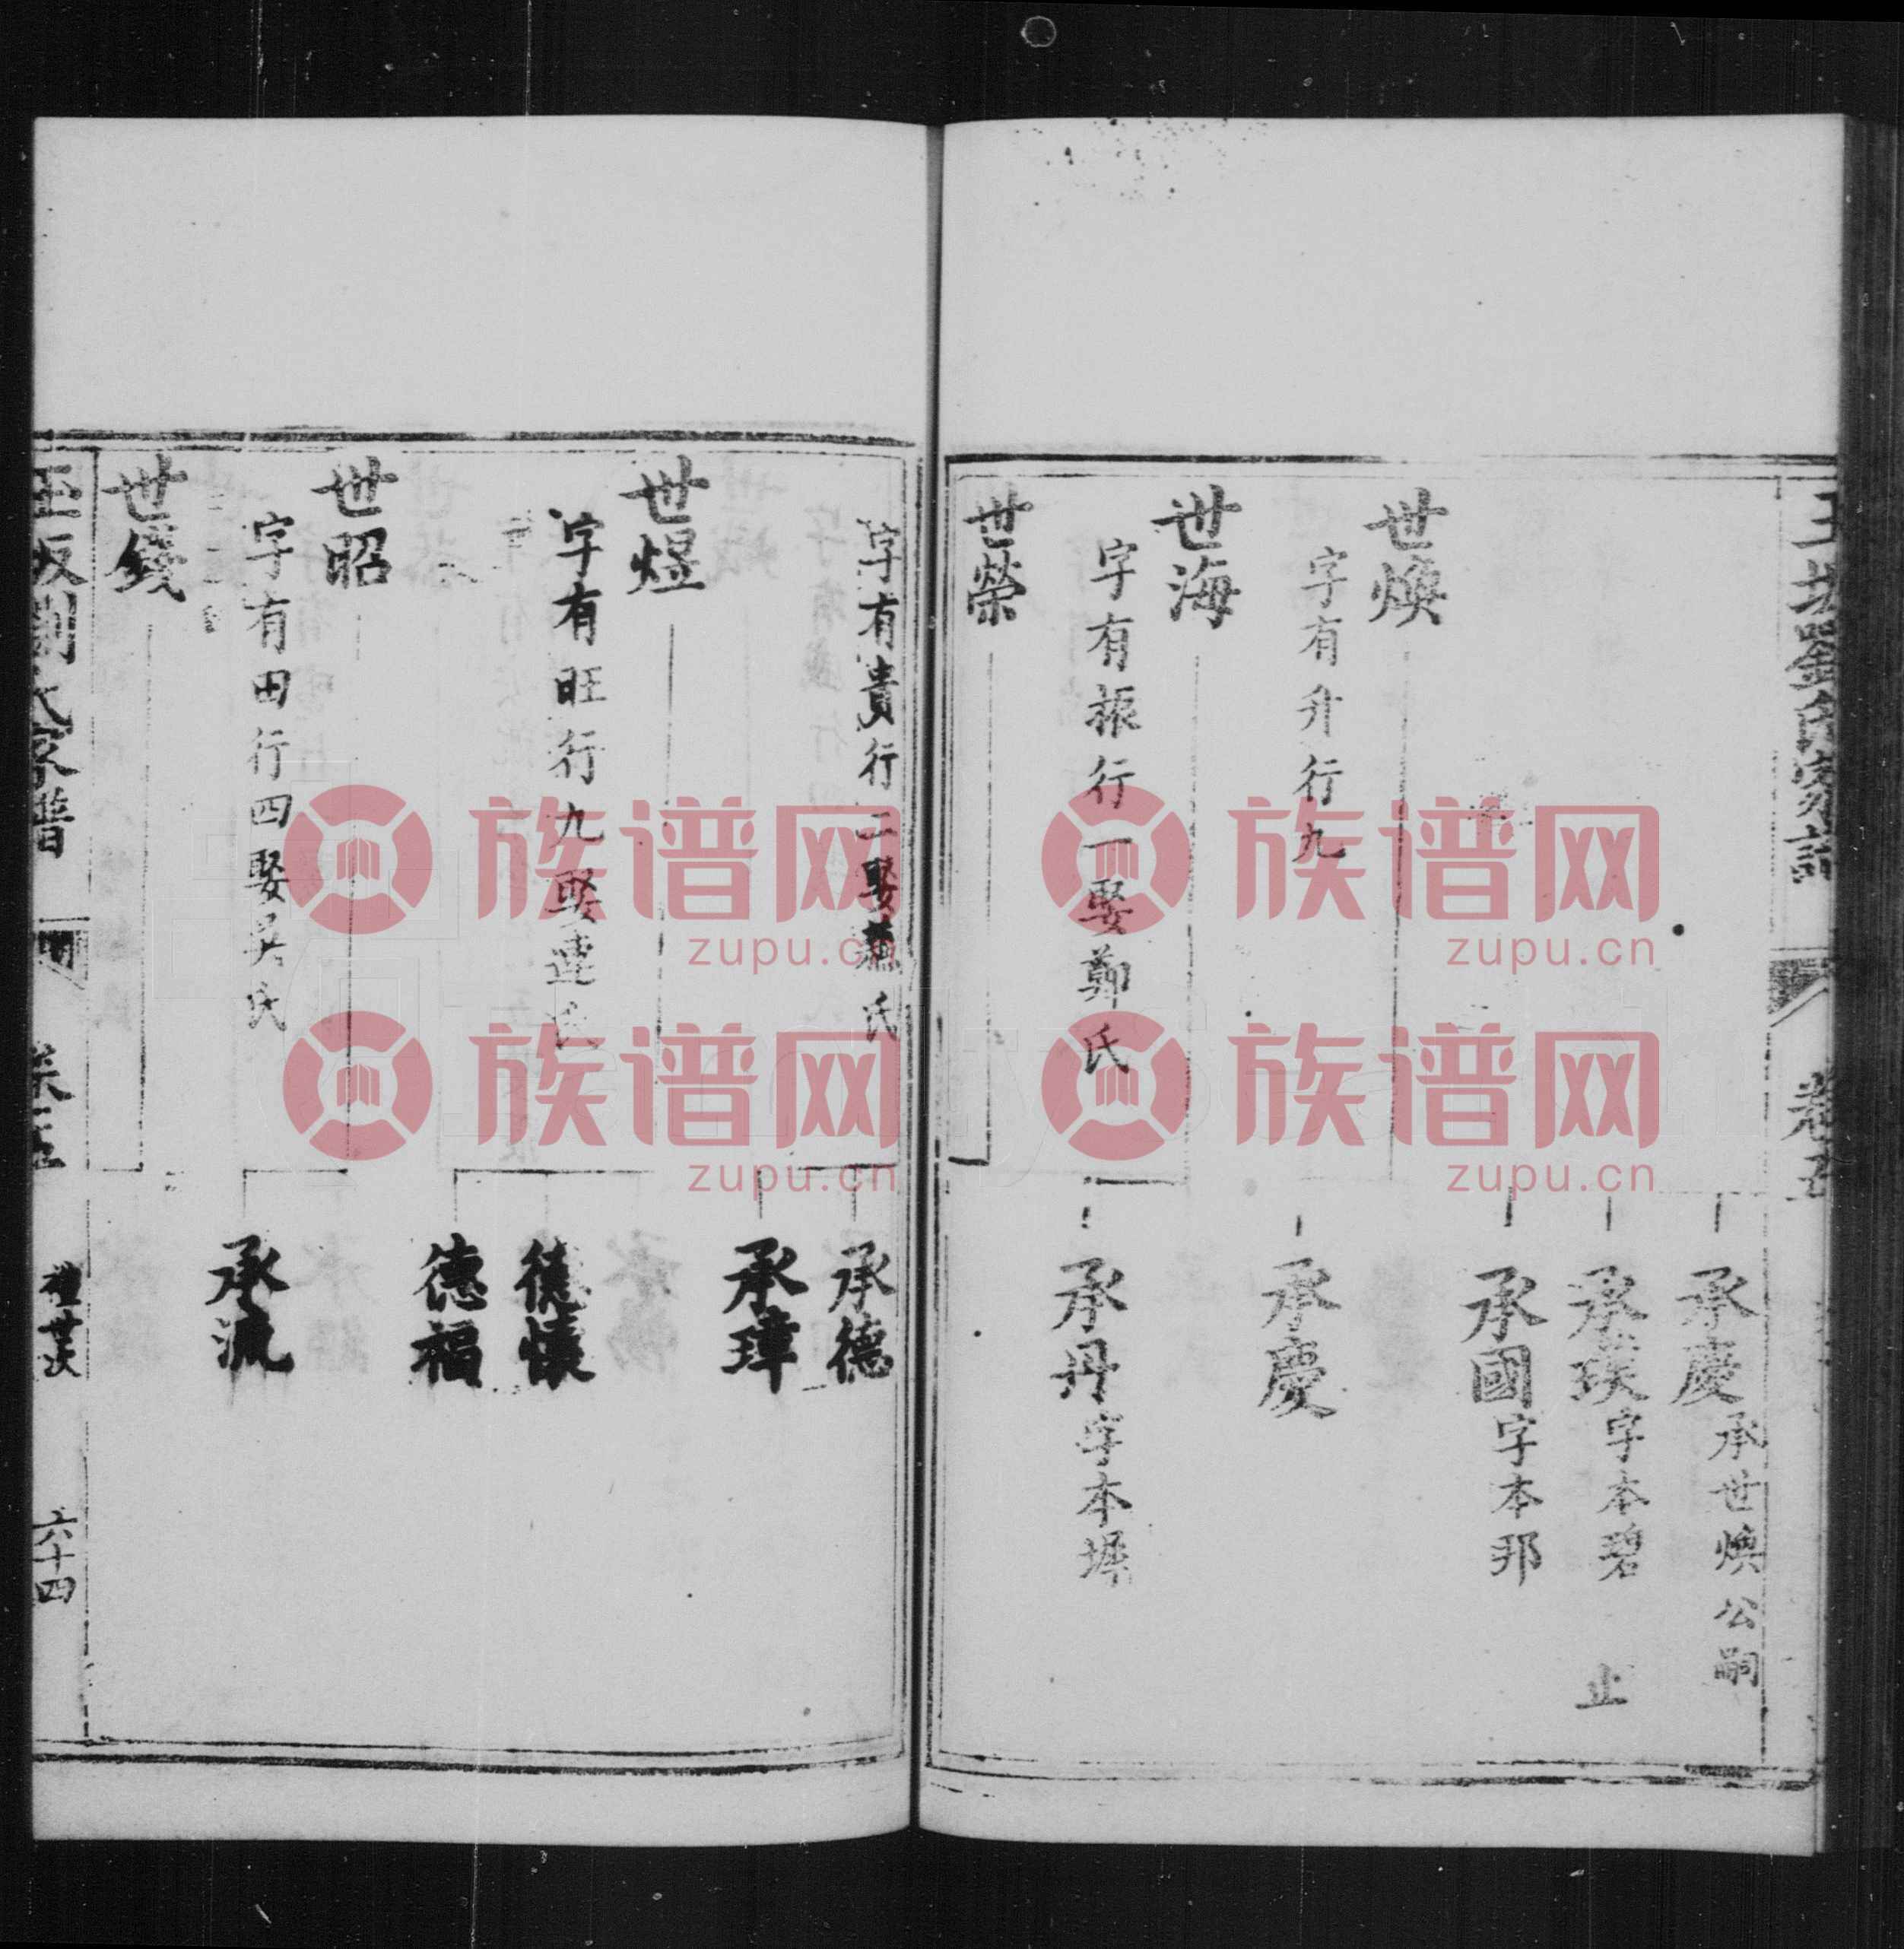 劉氏家譜
承慶 承世煥公嗣
承瑛 字本碧 止
承國 字本邦
世煥
字有升行九
承慶
世海
字有振行一娶鄭氏
承丹 字本墀
世榮
字有貴行二娶蕭氏
承德
承璋
世煜
字有旺行九娶連氏
德懷
德福
世昭
字有田行四娶吳氏
承流
世錢
玉坂劉氏家譜
卷五
禮世次
六十四
族谱网
zupu.cn
族谱网
zupu.cn
族谱网
zupu.cn
族谱网
zupu.cn